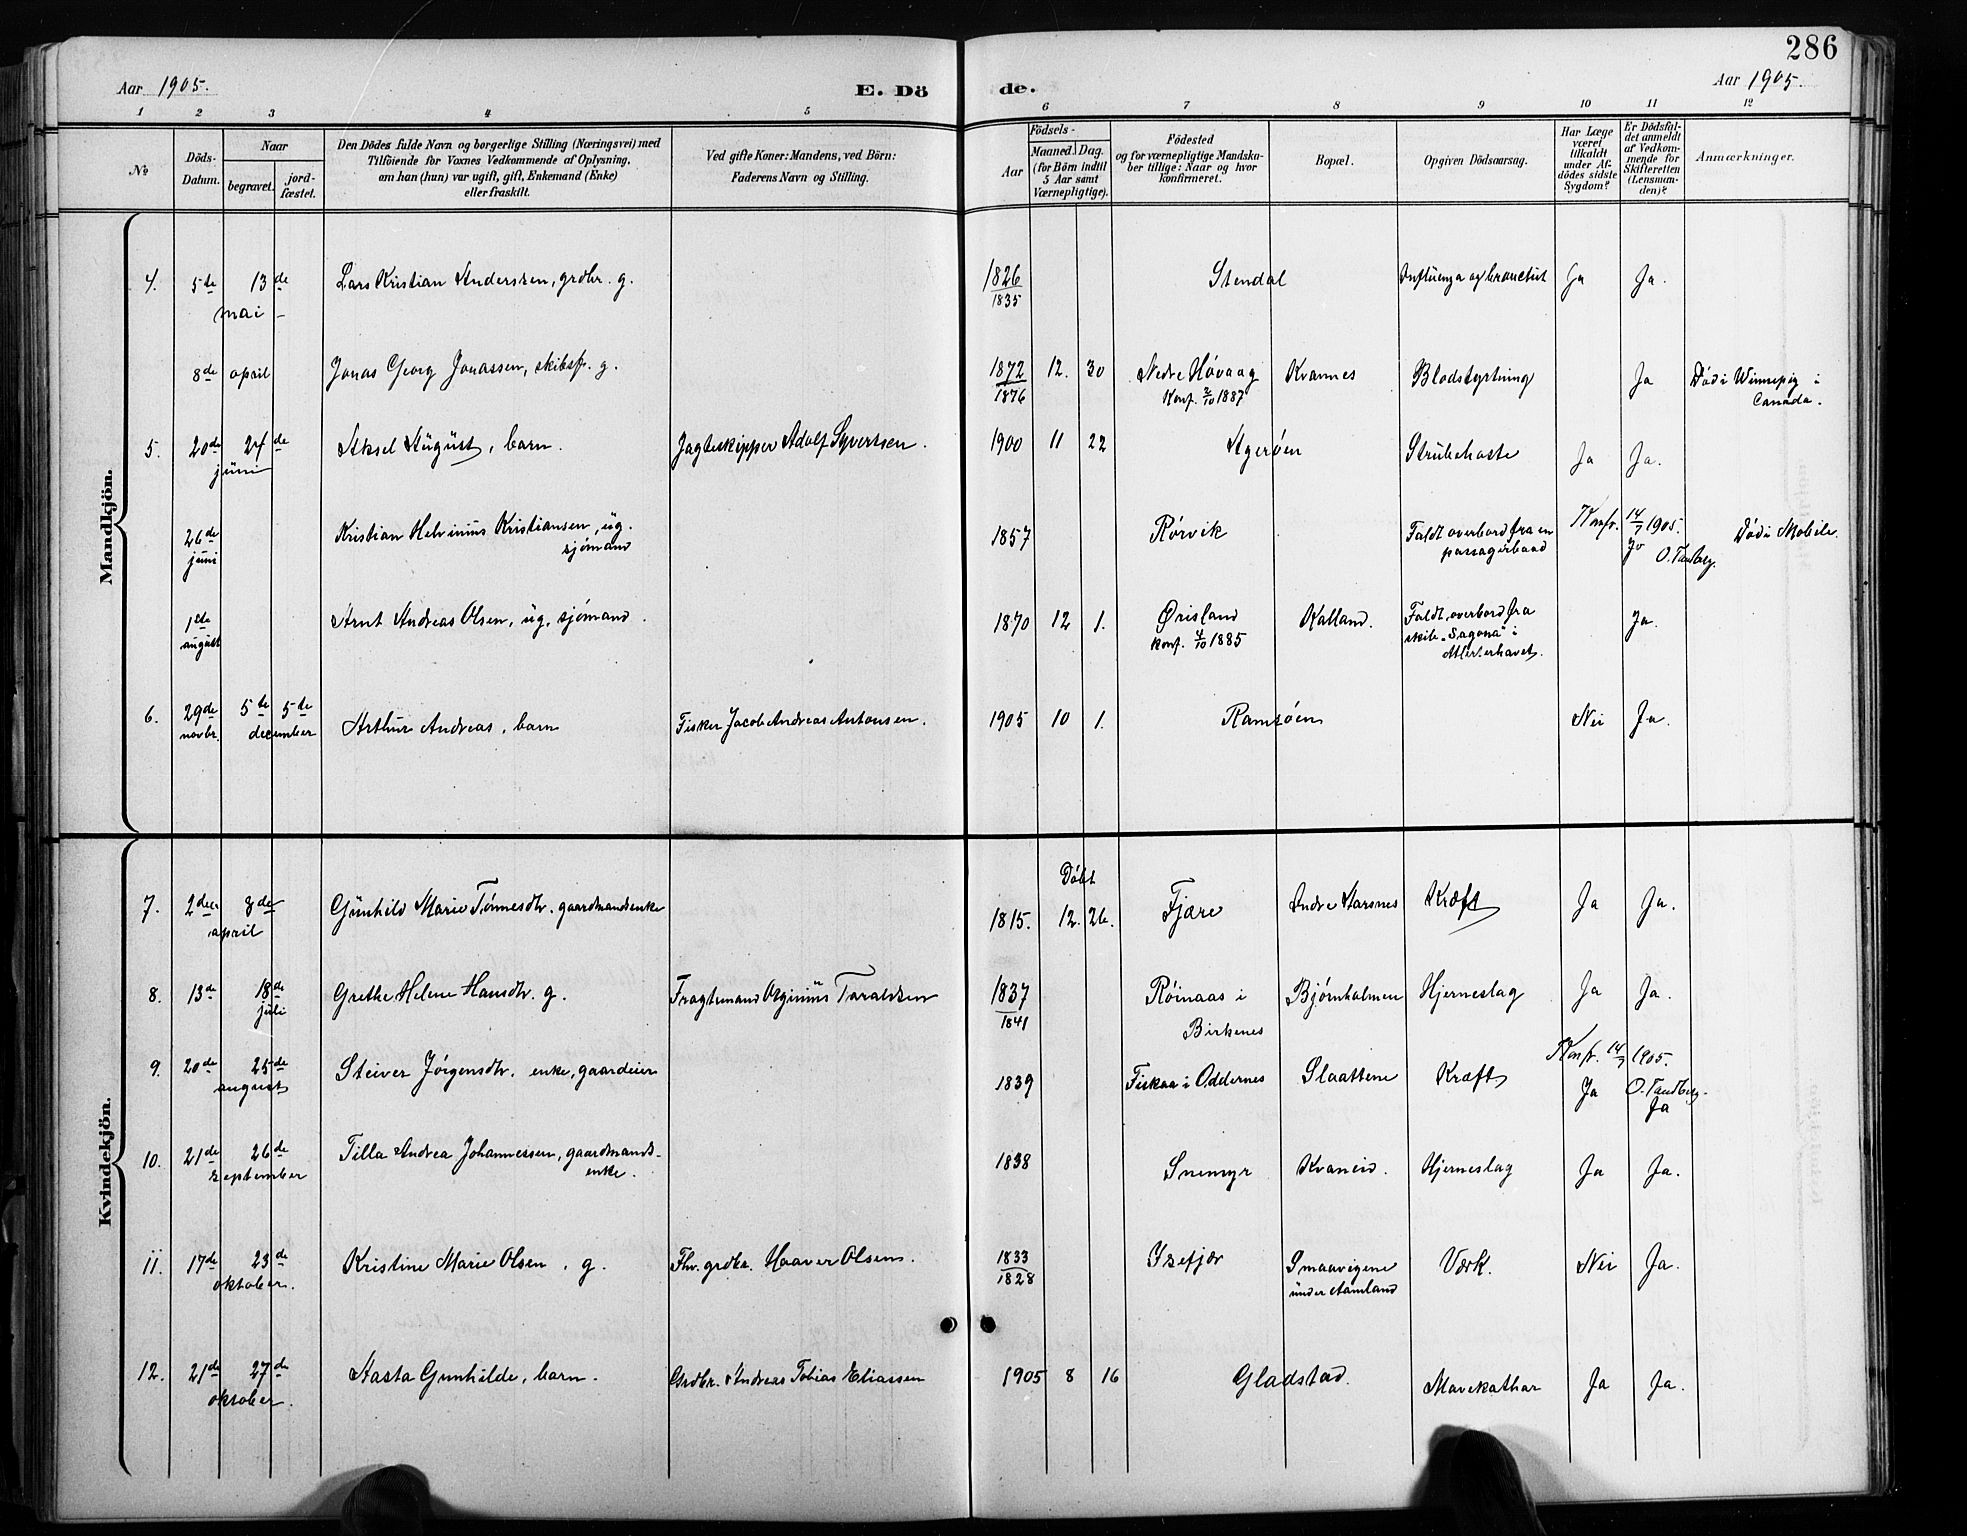 286
Aar 1905.
E. Dö de.
Aar 1905.
1 2 3 4 5 6 7 8 9 10 11 12
No
Döds-
Datum.
Naar
begravet.
jord-
fæstet.
Den Dödes fulde Navn og borgerlige Stilling (Næringsvei) med
Tilföiende for Voxnes Vedkommende af Oplysning,
om han (hun) var ugift, gift, Enkemand (Enke)
eller fraskilt.
Ved gifte Koner: Mandens, ved Börn:
Faderens Navn og Stilling.
Födsels-
Aar
Maaned. Dag.
(for Börn indtil
5 Aar samt
Værnepligtige).
Födested
og for værnepligtige Mandska-
ber tillige: Naar og hvor
konfirmeret.
Bopæl.
Opgiven Dödsaarsag.
Har Læge
været
tilkaldt
under Af-
dödes sidste
Sygdom?
Er Dödsfal-
det anmeldt
af Vedkom-
mende for
Skifteretten
(Lensman-
den)?
Anmærkninger.
Mandkjön.
4. 5te 13de Lars Kristian Anderssen, grdbr. g. 1826 Stendal Influenza og bronctit Ja Ja.
mai 1835
8de april Jonas Georg Jonassen, skibsf. g. 1872 12. 30 Nedre Høvaag Kvannes Blodstyrtning Ja Död i Winnepig i
1876 Konf. 2/10 1887 Canada.
5. 20de 24de Aksel August, barn. Jagteskipper Adolf Syvertsen. 1900 11 22 Agerøen Strubehoste Ja Ja.
juni
26de Kristian Helvinius Kristiansen, ug. 1857 Rörvik Faldt overbord fra en Konfr. 14/7 1905. Död i Mobile.
juni sjömand passagerbaad Ja O. Tandberg.
1ste Arnt Andreas Olsen, ug. sjömand. 1870 12 1. Ørisland Kalland. Faldt overbord fra Ja.
august konf. 4/10 1885 skib "Sagona" i
Atlerterhavet.
6. 29de 5te 5te Arthur Andreas, barn Fisker Jacob Andreas Antonsen. 1905 10 1. Ramsøen Nei Ja.
novbr. december
Kvindekjön.
Döbt
7. 2den 8de Gunhild Marie Tönnesdtr. gaardmandsenke 1815. 12. 26. Fjære Indre Aarsnes Kræft Ja Ja.
april
8. 13de 18de Grethe Helene Hansdtr. g. Fragtemand Orginius Taraldsen 1837 Röinaas i Bjørnholmen Hjerneslag Ja Ja.
juli 1841 Birkenes
9. 20de 25de Steiver Jörgensdtr. enke, gaardeier 1839 Fiskaa i Oddernes Slaattene Kræft Konfr. 14/9 1905.
august Ja O. Tandberg.
Ja
10. 21de 26de Tilla Andrea Johannessen, gaardmands- 1838 Snemyr Kvaneid. Hjerneslag Ja Ja.
september enke.
11. 17de 23de Kristine Marie Olsen, g. Fhv. grdbr. Haaver Olsen. 1833 Isefjær Smaavigene Værk. Nei Ja.
oktober. 1828 under Aamland
12. 21de 27de Aasta Gunhilde, barn. Grdbr. Andreas Tobias Eliassen 1905 8 16 Gladstad. Mavekathar Ja Ja.
oktober.